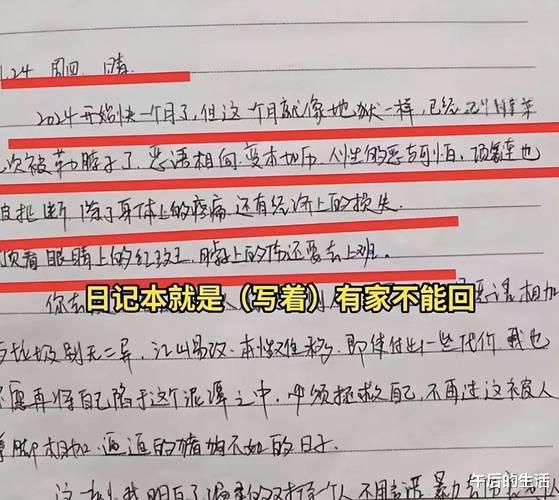 1.24 周四 晴
2024开始快一个月了,但这个月就像地狱一样,已经
次被勒脖子了,恶语相向,变本加厉,人性的恶与可怕,项链也
被扯断 除了身体上的疼痛,还有经济上的损失
顶着眼睛上的红斑,脖子上的伤还要去上班.
日记本就是(写着)有家不能回
你去 恶语相加
与垃圾别无二异,江山易改,本性难移,即使付出一些代价,我也
不愿再将自己陷于这个泥潭之中,必须拯救自己,不再过这被人
拳脚相加,逼迫的猪狗不如的日子.
这 我明白了 个人,不用言语暴力
午后的生活